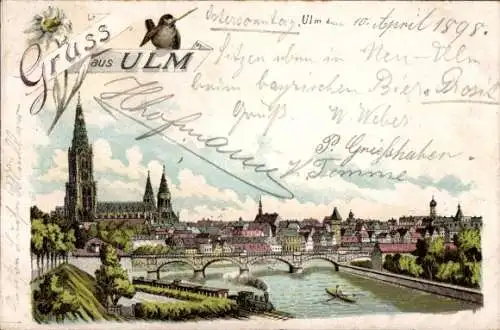 Gruss aus ULM
Ostersonntag, Ulm den 10. April 1898.
Sitzen eben in Neu-Ulm
beim bayrischen Bier. Prosit
Gruß W. Weber
Hofmann
P. Grieshaber
Temme